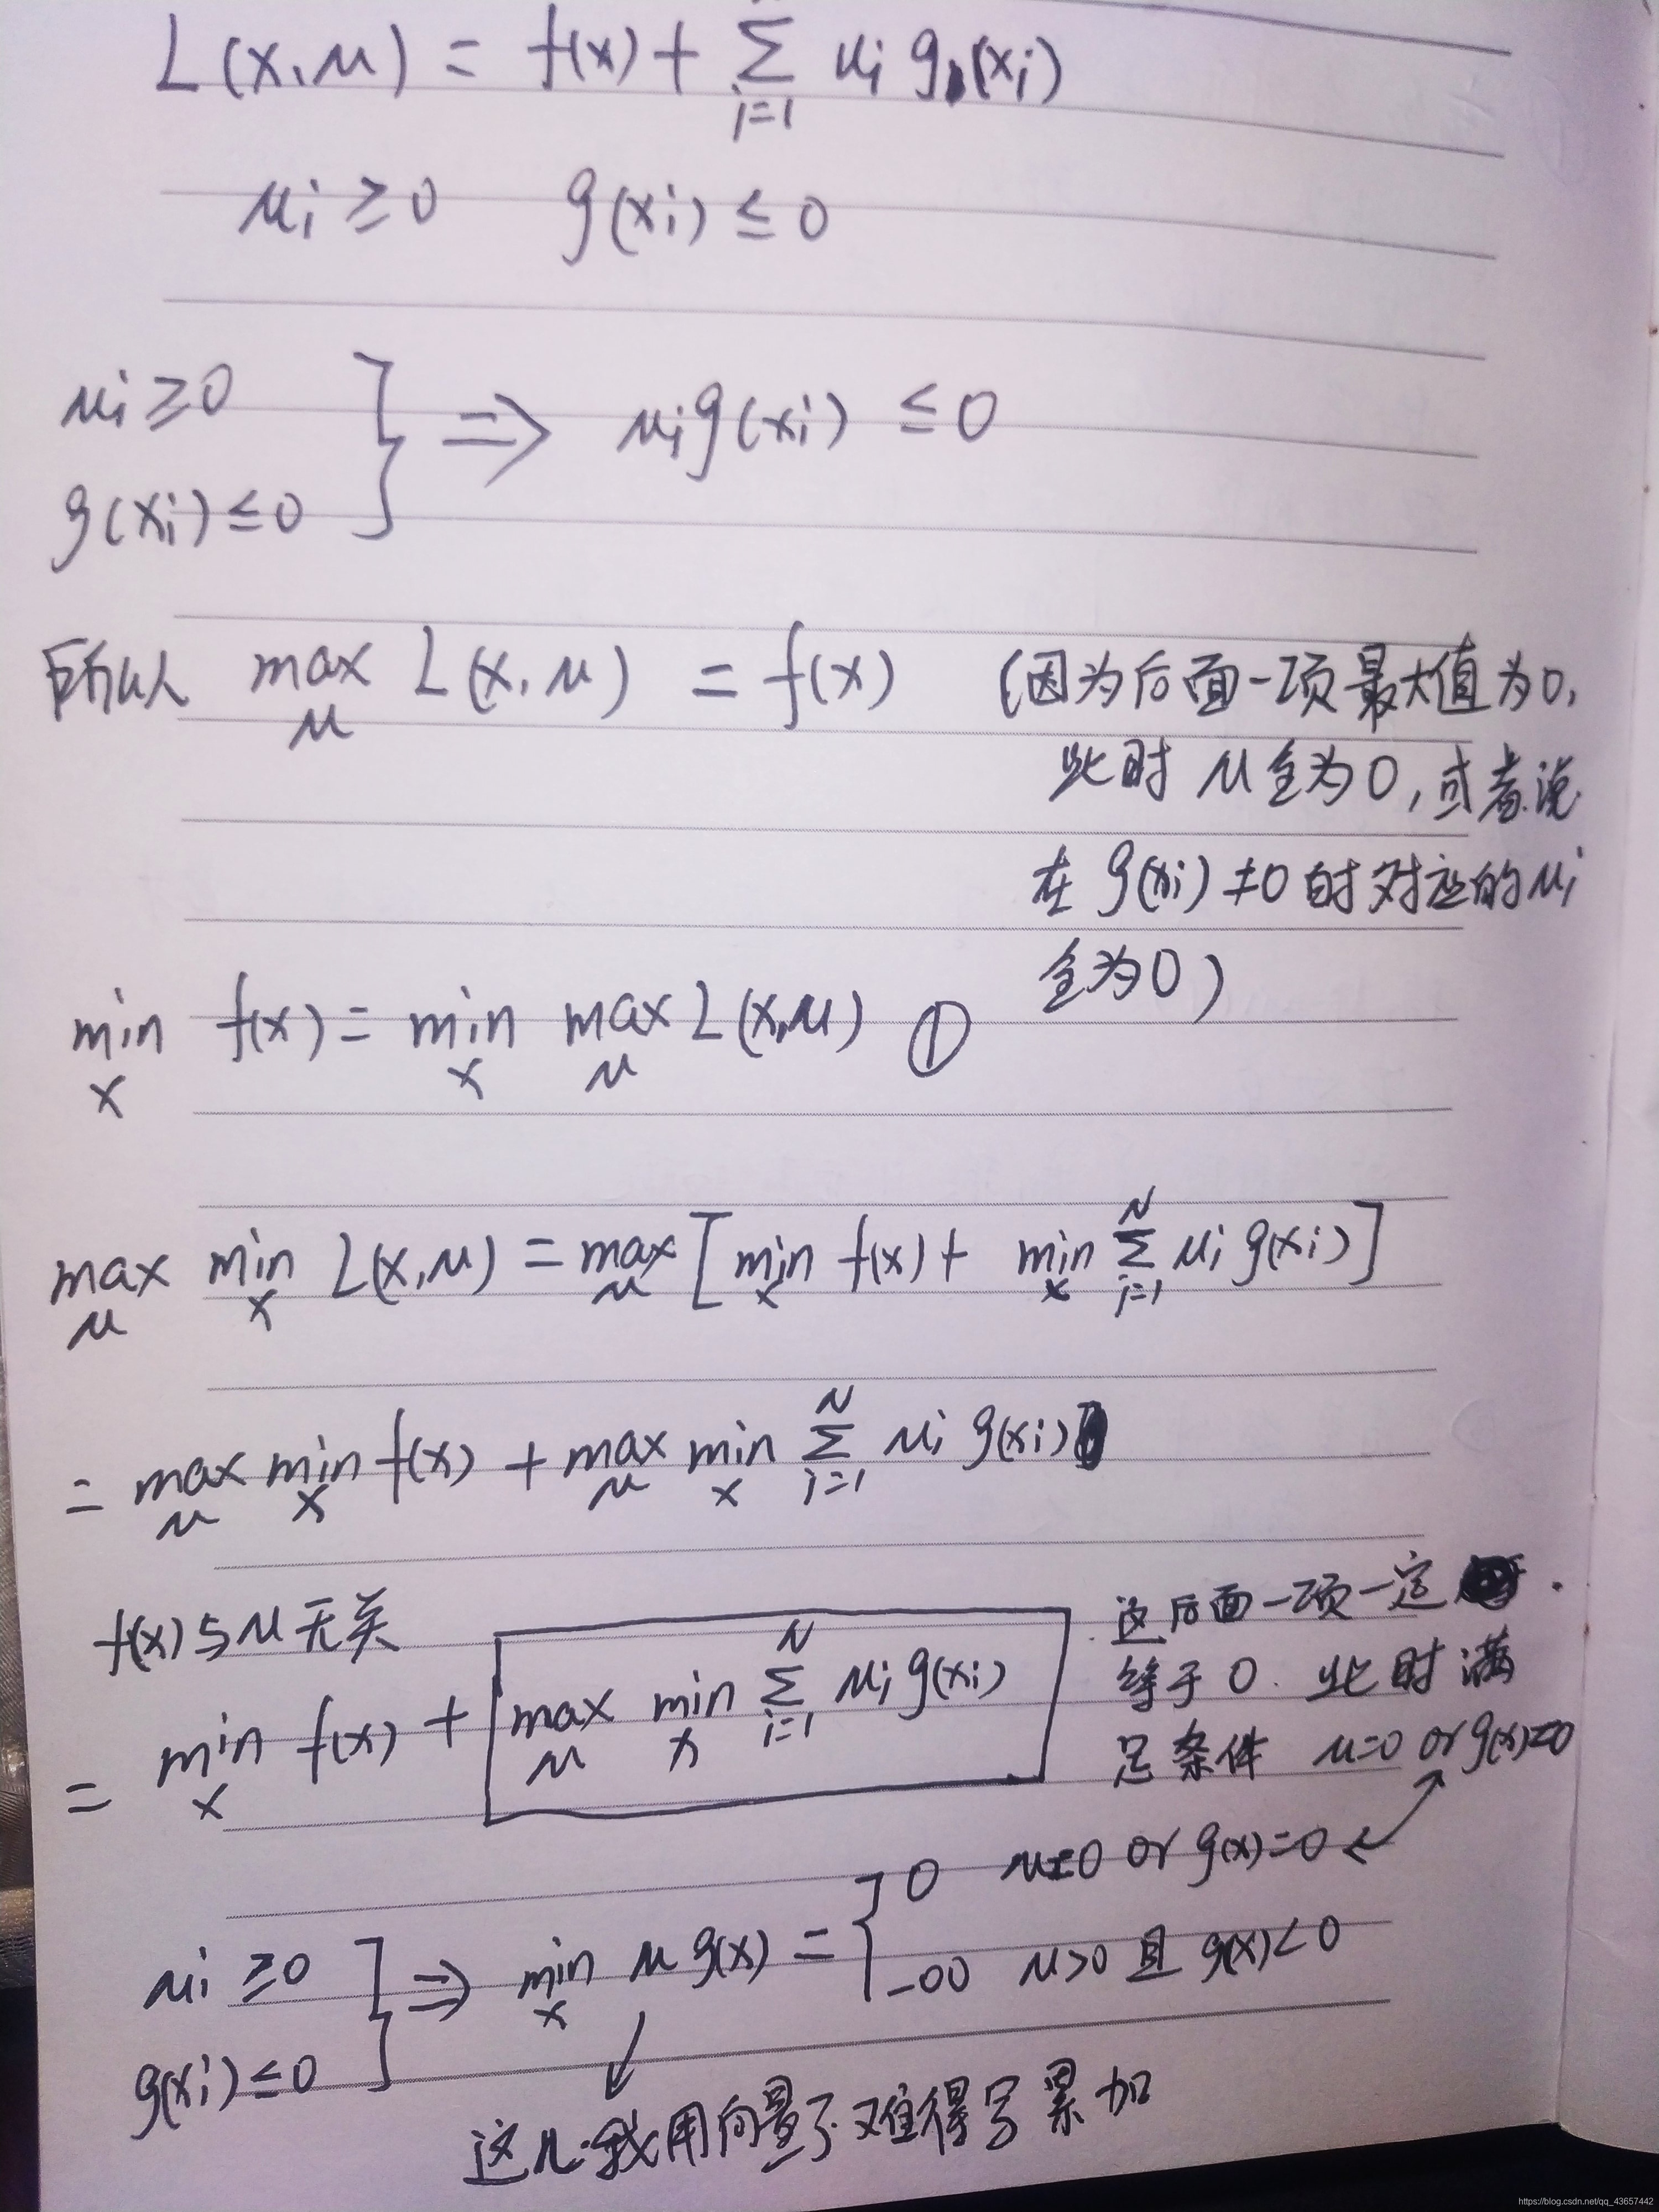 L(x,μ) = f(x) + Σ_{i=1} μ_i g(x_i)
μ_i ≥ 0    g(x_i) ≤ 0
μ_i ≥ 0
g(x_i) ≤ 0 } ⇒ μ_i g(x_i) ≤ 0
所以 max_μ L(x,μ) = f(x) (因为后面一项最大值为0,
此时 μ全为0,或者说
在 g(x_i) ≠ 0 时对应的 μ_i
全为0)
min_x f(x) = min_x max_μ L(x,μ) ①
max_μ min_x L(x,μ) = max_μ [ min_x f(x) + min_x Σ_{i=1}^N μ_i g(x_i) ]
= max_μ min_x f(x) + max_μ min_x Σ_{i=1}^N μ_i g(x_i)
f(x)与μ无关
= min_x f(x) + max_μ min_x Σ_{i=1}^N μ_i g(x_i)
这后面一项一定
等于 0. 此时满
足条件 μ=0 or g(x)=0
μ_i ≥ 0
g(x_i) ≤ 0 } ⇒ min_x μ g(x) = { 0 μ=0 or g(x)=0
-∞ μ>0 且 g(x)<0
这儿我用向量了.难得写累加
https://blog.csdn.net/qq_43657442